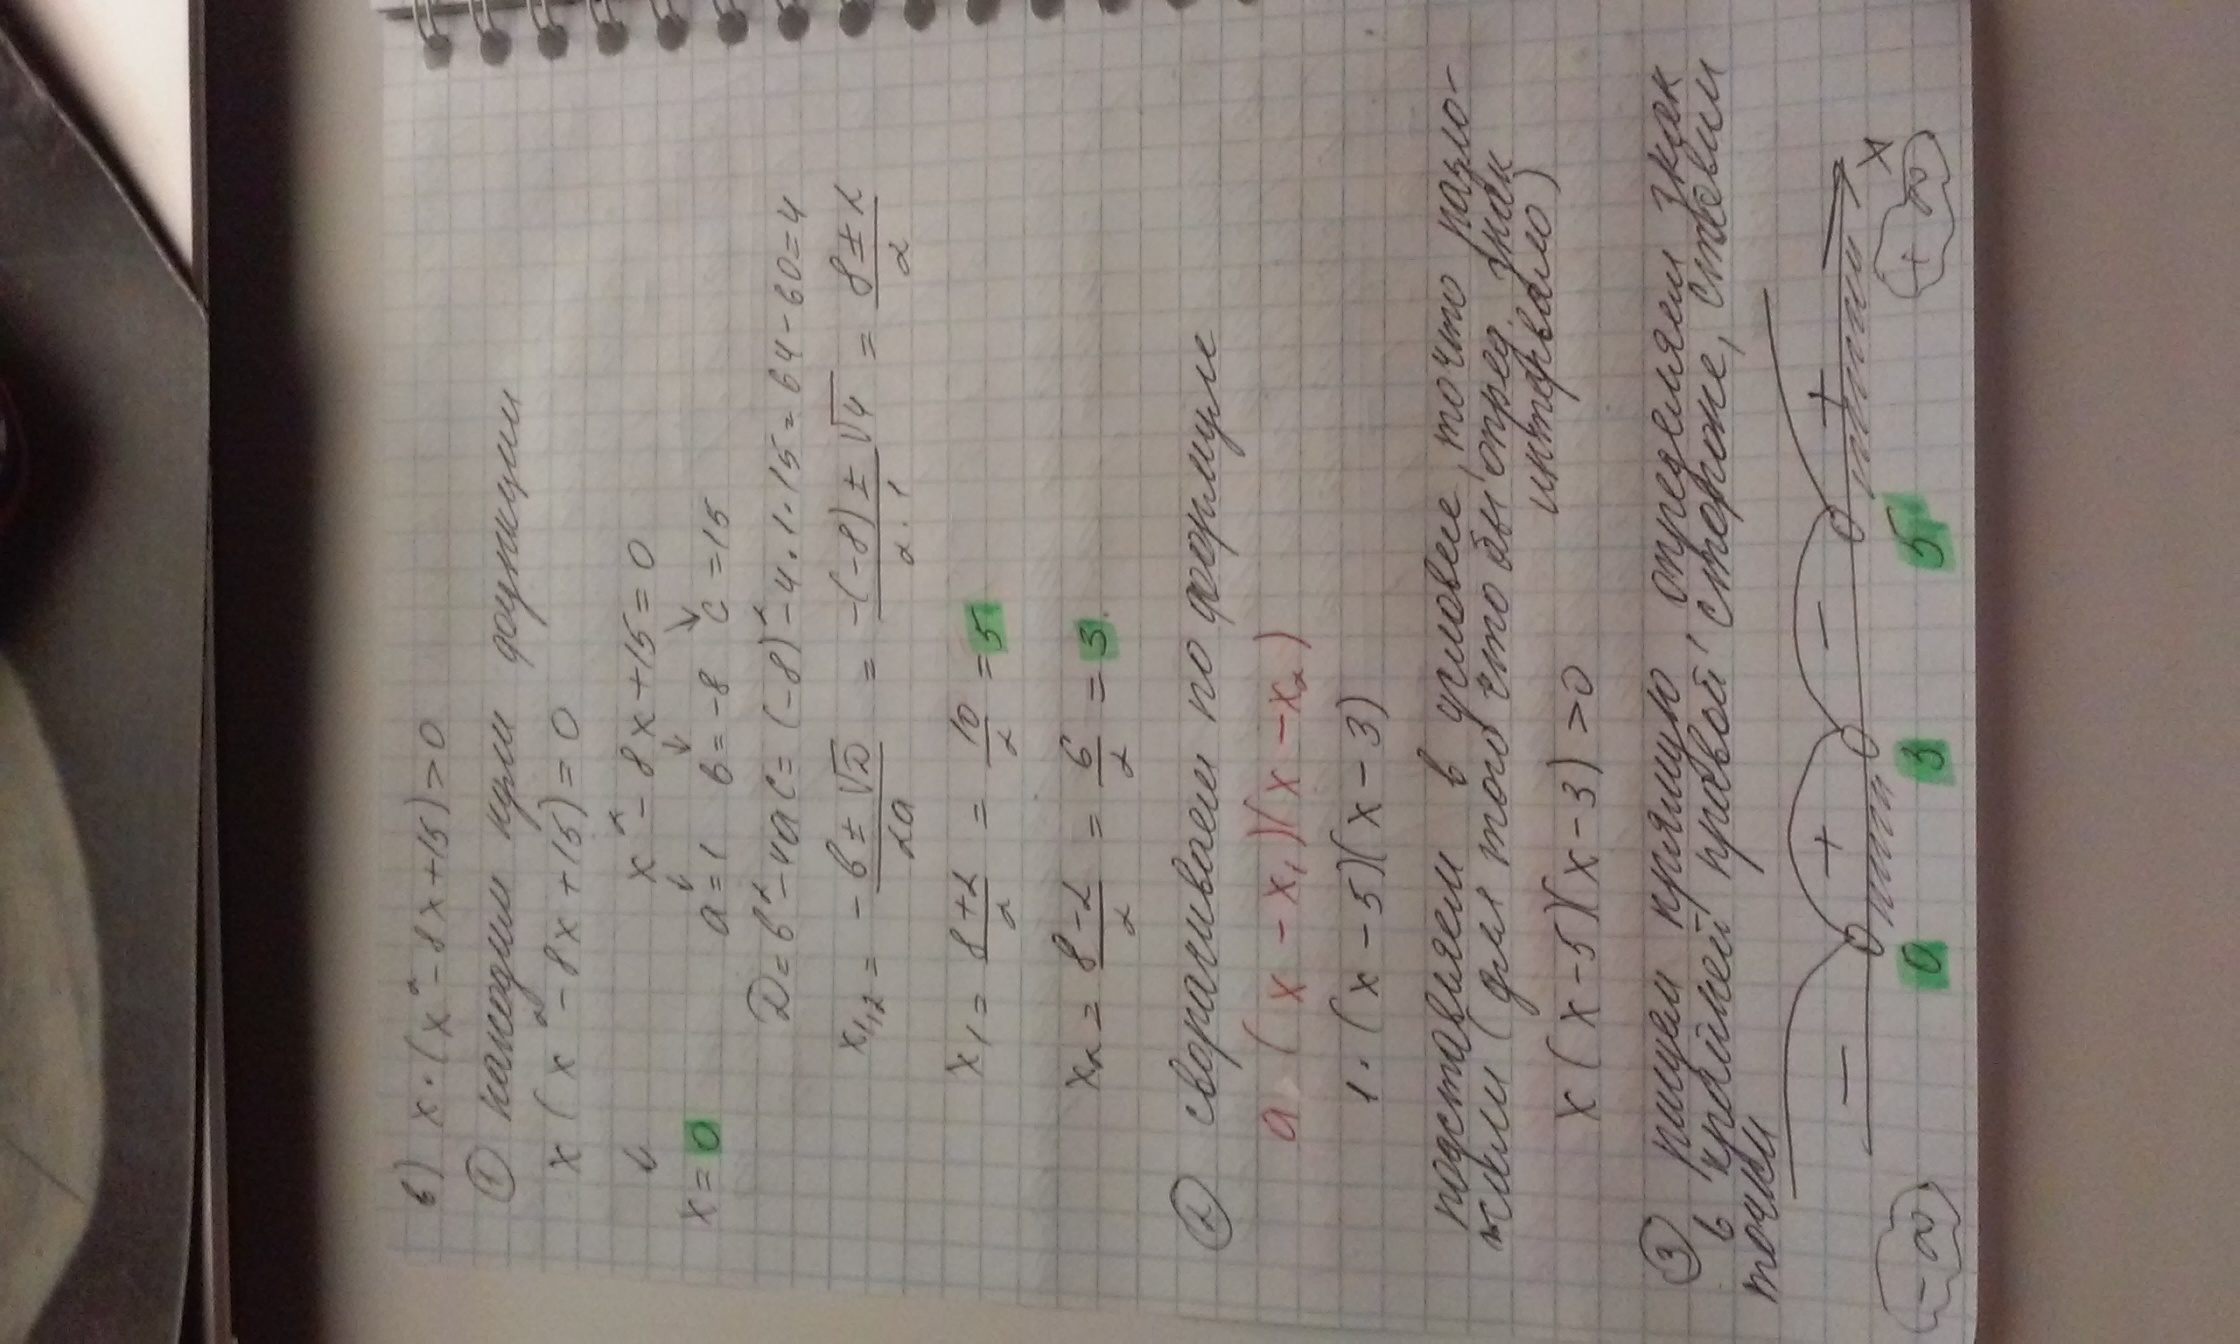 в) x·(x²-8x+15)>0
① находим нули функции
x(x²-8x+15)=0
x²-8x+15=0
x=0 a=1 b=-8 c=15
D=b²-4ac=(-8)²-4·1·15=64-60=4
x₁,₂= -b±√D/2a = -(-8)±√4/2·1 = 8±2/2
x₁= 8+2/2 = 10/2 =5
x₂= 8-2/2 = 6/2 =3
② сворачиваем по формуле
a·(x-x₁)(x-x₂)
1·(x-5)(x-3)
подставляем в условие, то что разло-
жили (для того что бы опред. знак
интервало)
x(x-5)(x-3)>0
③ пишем прямую определяем знак
в "крайней правой" стороне, ставим
точки
- + - +
x
(-∞) 0 3 5 (+∞)